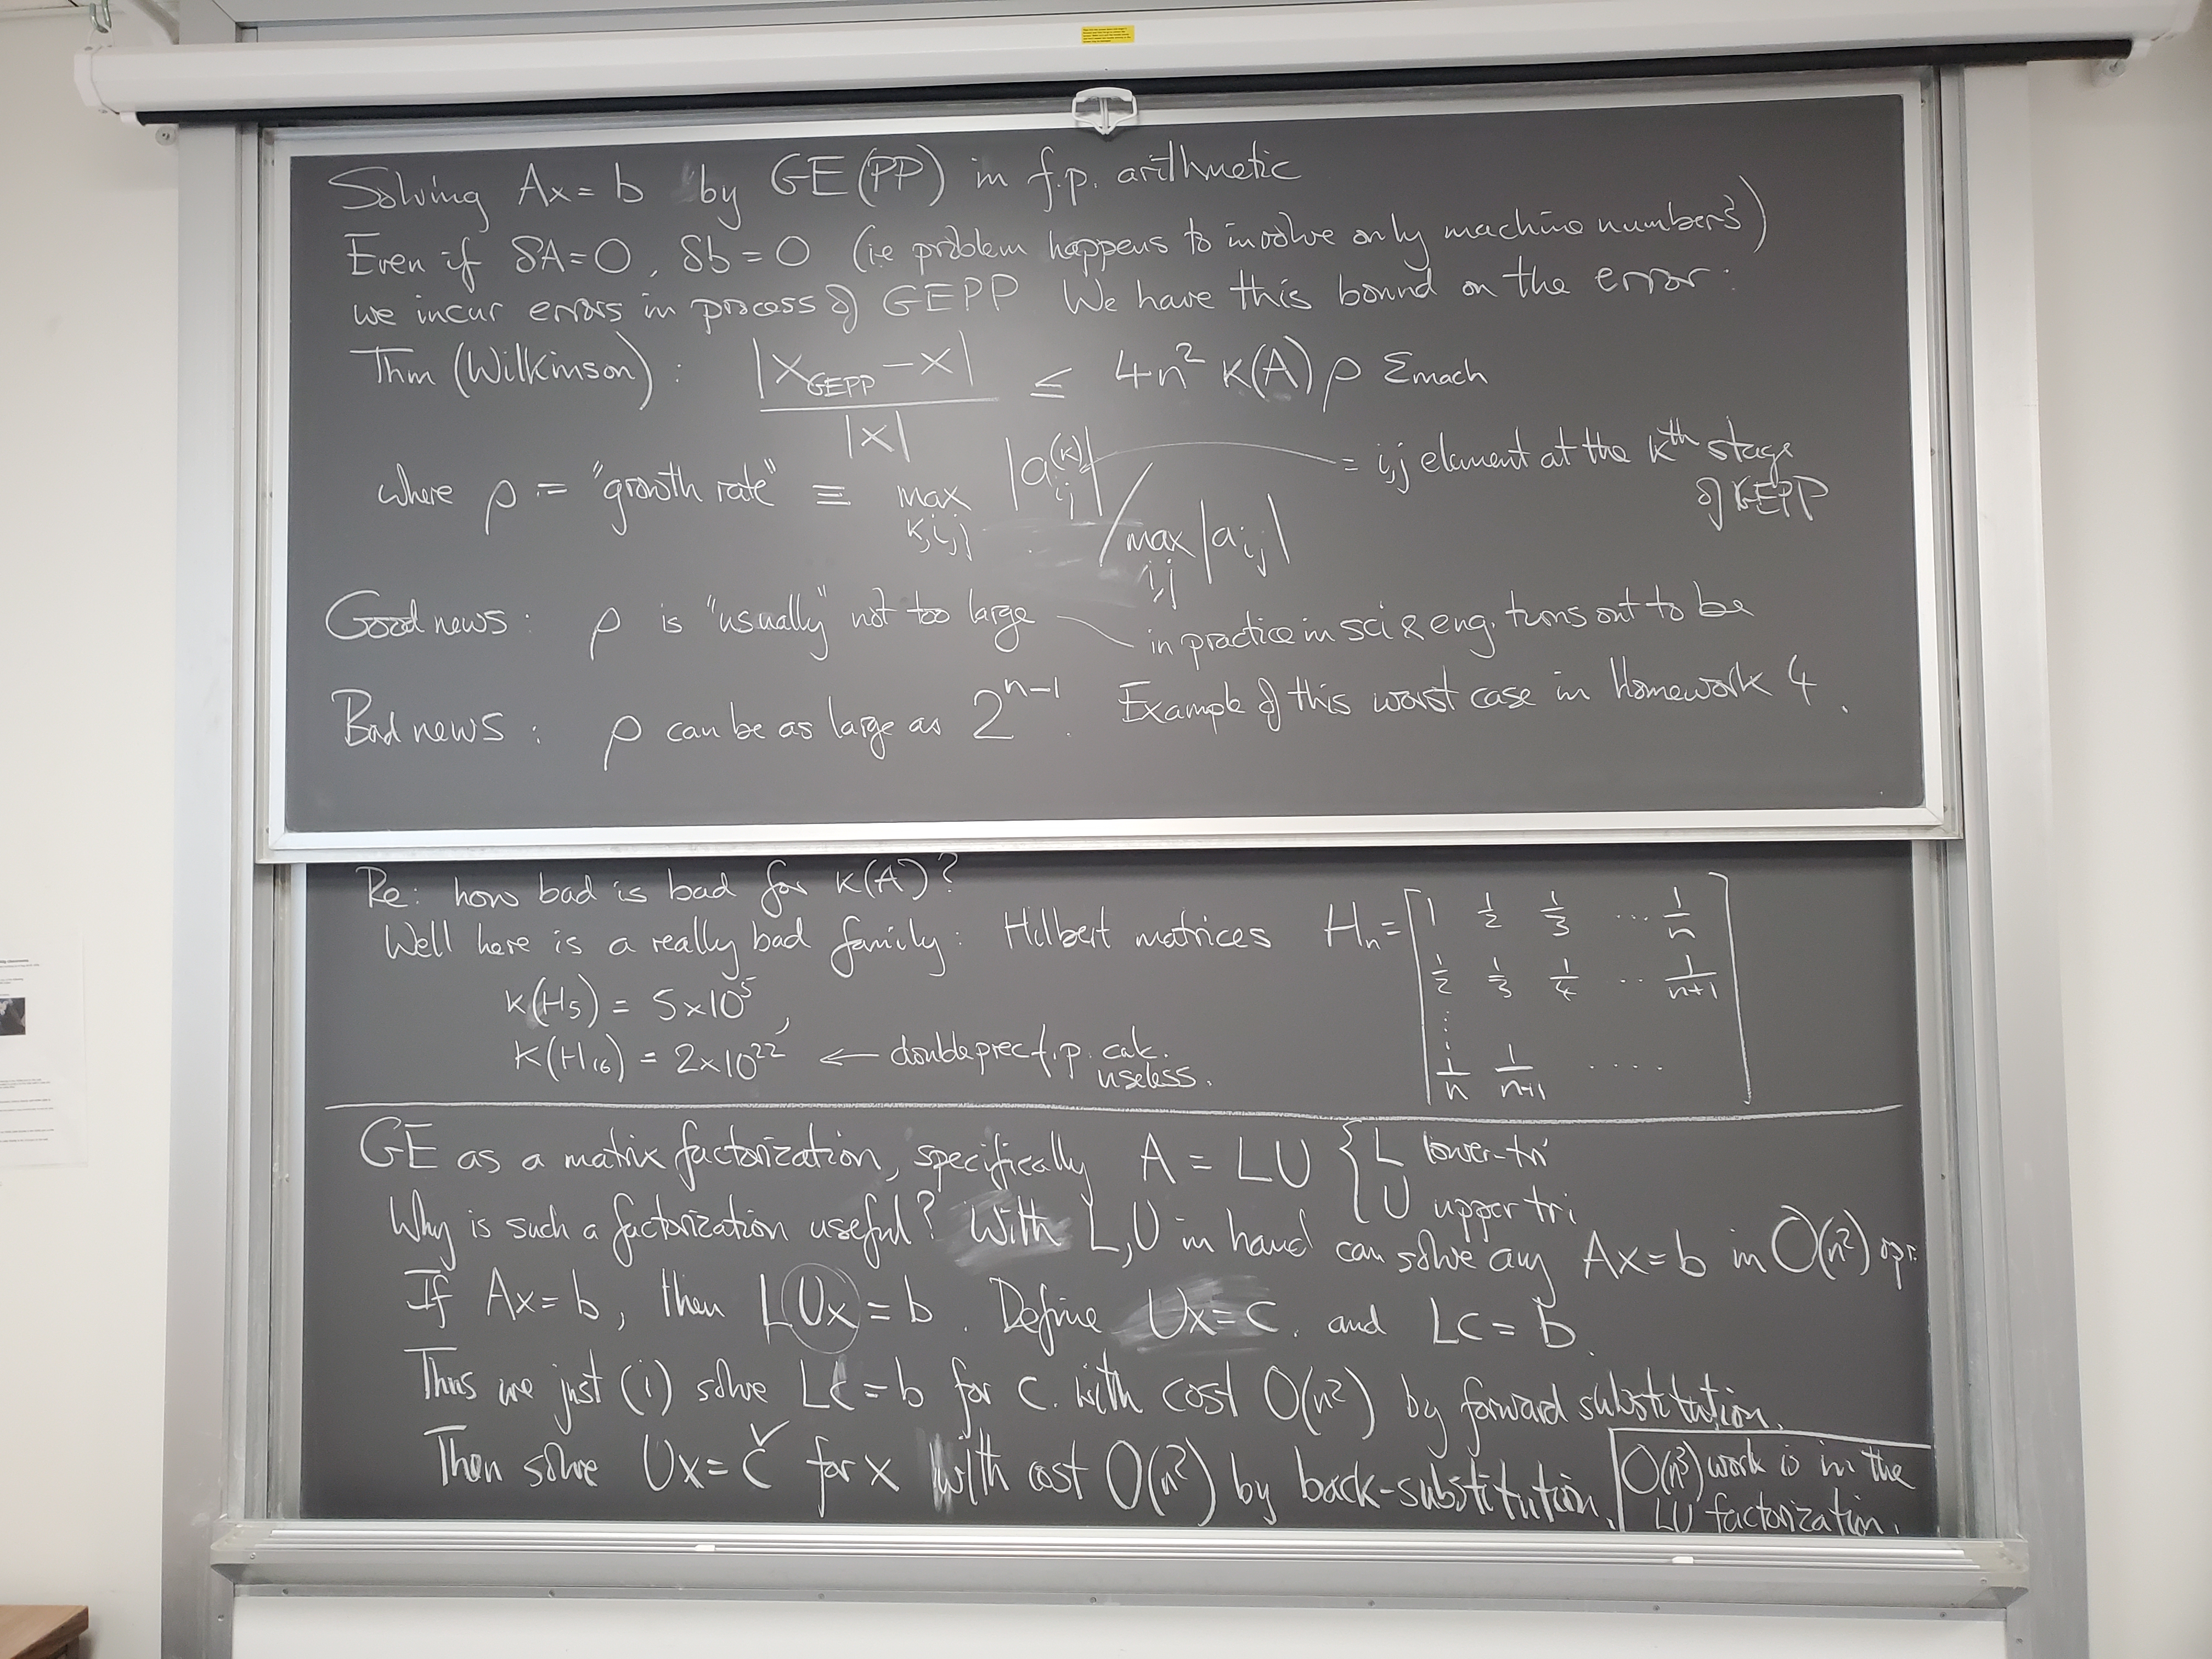 Solving Ax = b by GE(PP) in f.p. arithmetic
Even if δA=0, δb=0 (ie problem happens to involve only machine numbers)
we incur errors in process of GEPP We have this bound on the error:
Thm (Wilkinson): |x_GEPP − x| / |x| ≤ 4n² K(A) ρ ε_mach
where ρ := "growth rate" ≡ max_{k,i,j} |a_{ij}^{(k)}| / max_{i,j} |a_{ij}|
= i,j element at the kth stage
of GEPP
Good news: ρ is "usually" not too large
in practice in sci & eng. turns out to be
Bad news: ρ can be as large as 2^{n-1}. Example of this worst case in Homework 4.
Re: how bad is bad for K(A)?
Well here is a really bad family: Hilbert matrices H_n = [1 1/2 1/3 ... 1/n
1/2 1/3 1/4 .. 1/(n+1)
⋮
1/n 1/(n+1) ....]
K(H_5) = 5×10^5,
K(H_16) = 2×10^22 ← double prec f.p. calc.
useless.
GE as a matrix factorization, specifically A = LU { L lower-tri
U upper tri
Why is such a factorization useful? With L,U in hand can solve any Ax=b in O(n²) ops.
If Ax=b, then LUx=b. Define Ux=c. and Lc=b.
Thus we just (i) solve Lc=b for c. with cost O(n²) by forward substitution.
Then solve Ux=c ✓ for x with cost O(n²) by back-substitution.
O(n³) work is in the
LU factorization.